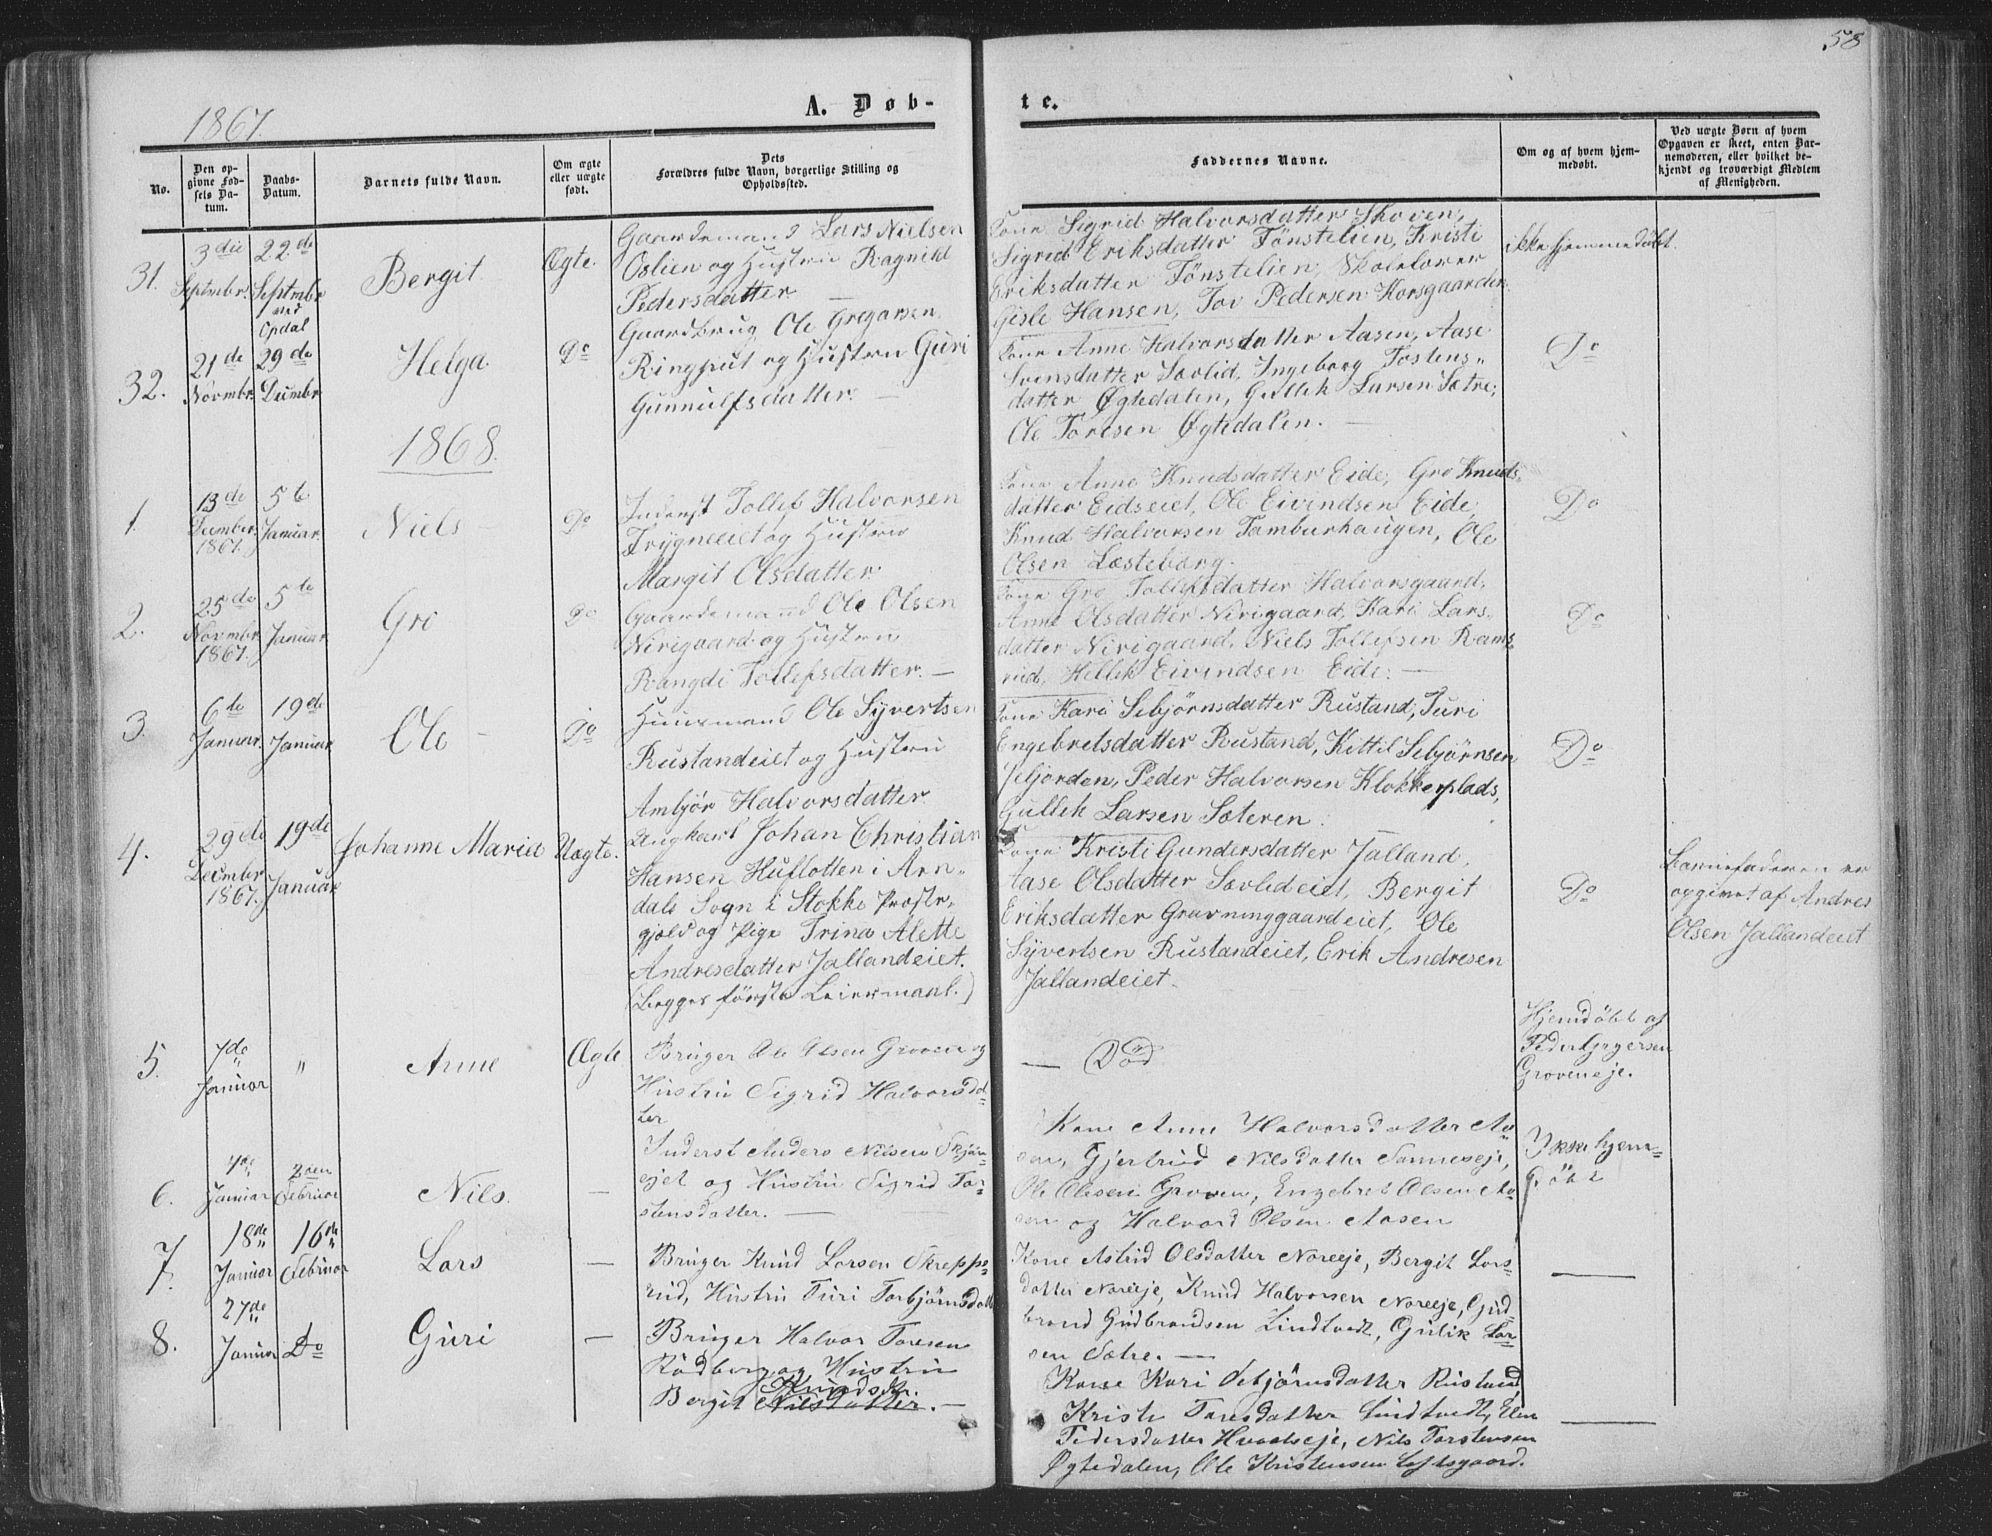 58
1867.
A. Døb-
te.
No.
Den op-
givne Fød-
sels Da-
tum.
Daabs-
Datum.
Barnets fulde Navn.
Om ægte
eller uægte
født.
Dets
Forældres fulde Navn, borgerlige Stilling og
Opholdssted.
Faddernes Navne.
Om og af hvem hjem-
medøbt.
Ved uægte Børn af hvem
Opgaven er skeet, enten Bar-
nemoderen, eller hvilket be-
kjendt og troværdigt Medlem
af Menigheden.
31.
3die
Septmbr.
22de
Septmbr
ved
Opdal
Bergit
Ægte.
Gaardemand Lars Nielsen
Oslien og Hustru Ragnild
Pedersdatter —
Kone Sigrid Halvorsdatter Skoven,
Sigrid Eriksdatter Tönstelien, Kristi
Eriksdatter Tönstelien, Skolelærer
Gisle Hansen, Tov Pedersen Korsgaarden.
ikke hjemmedöbt.
32.
21de
Novmbr.
29de
Dcmbr
Helga.
Do
Gaardbrug Ole Gregarsen
Ringnut og Hustru Guri
Gunnulfsdatter. —
Kone Anne Halvorsdatter Aasen, Aase
Svensdatter Sævlid, Ingeborg Tostens-
datter Øgtedalen, Gullek Larsen Sætre,
Ole Toresen Øgtedalen. —
Do
1868.
1.
13de
Decmber
1867.
5te
Januar.
Niels —
Do
Inderst Tollef Halvorsen
Trygneeiet og Hustru
Margit Olsdatter.
Kone Anne Knudsdatter Eide, Gro Knuds-
datter Eidseiet, Ole Eivindsen Eide,
Knud Halvorsen Tamburhaugen, Ole
Olsen Læsteberg.
Do
2.
25de
Novmbr
1867.
5te
Januar
Gro
Do
Gaardemand Ole Olsen
Nirigaard og Hustru
Rangdi Tollefsdatter. —
Kone Gro Tollefsdatter Halvorsgaard,
Anne Olsdatter Nirigaard, Kari Lars-
datter Nirigaard, Niels Tollefsen Rams-
rud, Hellek Eivindsen Eide. —
Do
3.
6te
Januar.
19de
Januar
Ole —
Do
Huusmand Ole Syvertsen
Rustandeiet og Hustru
Ambjör Halvorsdatter.
Kone Kari Sebjørnsdatter Rustand, Turi
Engebretsdatter Rustand, Kittil Sebjørnsen
Peder Halvorsen Klokkerplads,
Gullek Larsen Sæteren.
Do
4.
29de
Decmbr
1867.
19de
Januar
Johanne Maria
Uægte.
Ungkarl Johan Christian
Hansen Huflotten i Arn-
dals Sogn i Stokke Præste-
gjæld og Pige Trina Alette
Andresdatter Jallandeiet.
(Begges förste Leiermaal.)
Kone Kristi Gundersdatter Jalland,
Aase Olsdatter Sævlideiet, Bergit
Eriksdatter Gravninggaardeiet, Ole
Syvertsen Rustandeiet, Erik Andresen
Jallandeiet.
Do
Barnefaderen er
opgivet af Andres
Olsen Jallandeiet
5.
7de
"
Januar
"
Anne
Ægte
Bruger Ole Olsen Groven og
Hustru Sigrid Halvorsdat-
ter
— Död
Hjemdöbt af
Groveneje.
6.
7de
Januar
2den
Februar
Nils.
—
Inderst Anders Nilsen Skjön-
ejet og Hustru Sigrid Tor-
stensdatter. —
Kone Anne Halvorsdatter Aa-
sen, Gjertrud Nilsdatter Sanneseje,
Ole Olesen Groven, Engebret Olsen Aa-
sen og Halvord Olsen Aasen
Ikke hjem-
döbt
7.
18de
Januar
16de
Februar
Lars
—
Bruger Knud Larsen Skreppe-
rud, Hustru Turi Torbjörnsdatt
Kone Astrid Olsdatter Noreeje, Bergit Lars-
datter Noreeje, Knud Halvorsen Noreeje, Gud-
brand Gudbrandsen Lindtvedt, Gulik Lar-
sen Sætre. —
—
8.
27de
Januar
Do
Guri
—
Bruger Halvor Toresen
Rödberg og Hustru
Knudsdtr.
Bergit Nilsdatter. —
Kone Kari Sebjörnsdatter Rustand,
Kristi Toresdatter Lindtvedt, Elen
Pedersdatter Hvaalseje, Nils Torstensen
Øgtedalen, Ole Kristensen Loftsgaard.
—